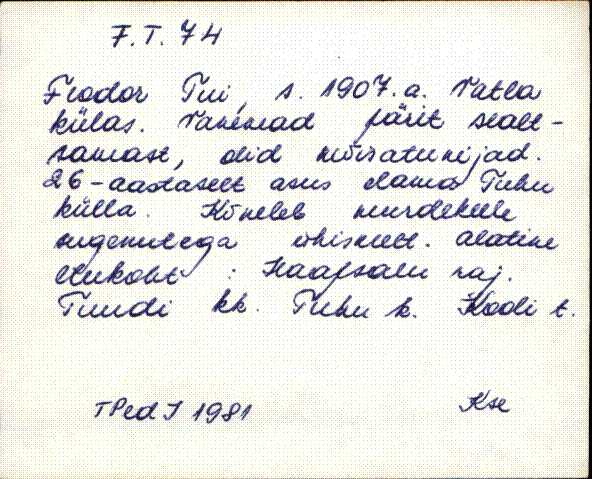 F. T. 74
Feodor Tui, s. 1907. a. Vatla
külas. Vanemad pärit sealt-
samast, olid mõisatunijad.
26-aastaselt asus elama Tuhu
külla. Kõneleb murdekeele
sugemetega ühiskeelt. alatine
elukoht : Haapsalu raj.
kk. Tuhu k. Koodi t.
TPedI 1981 Kse